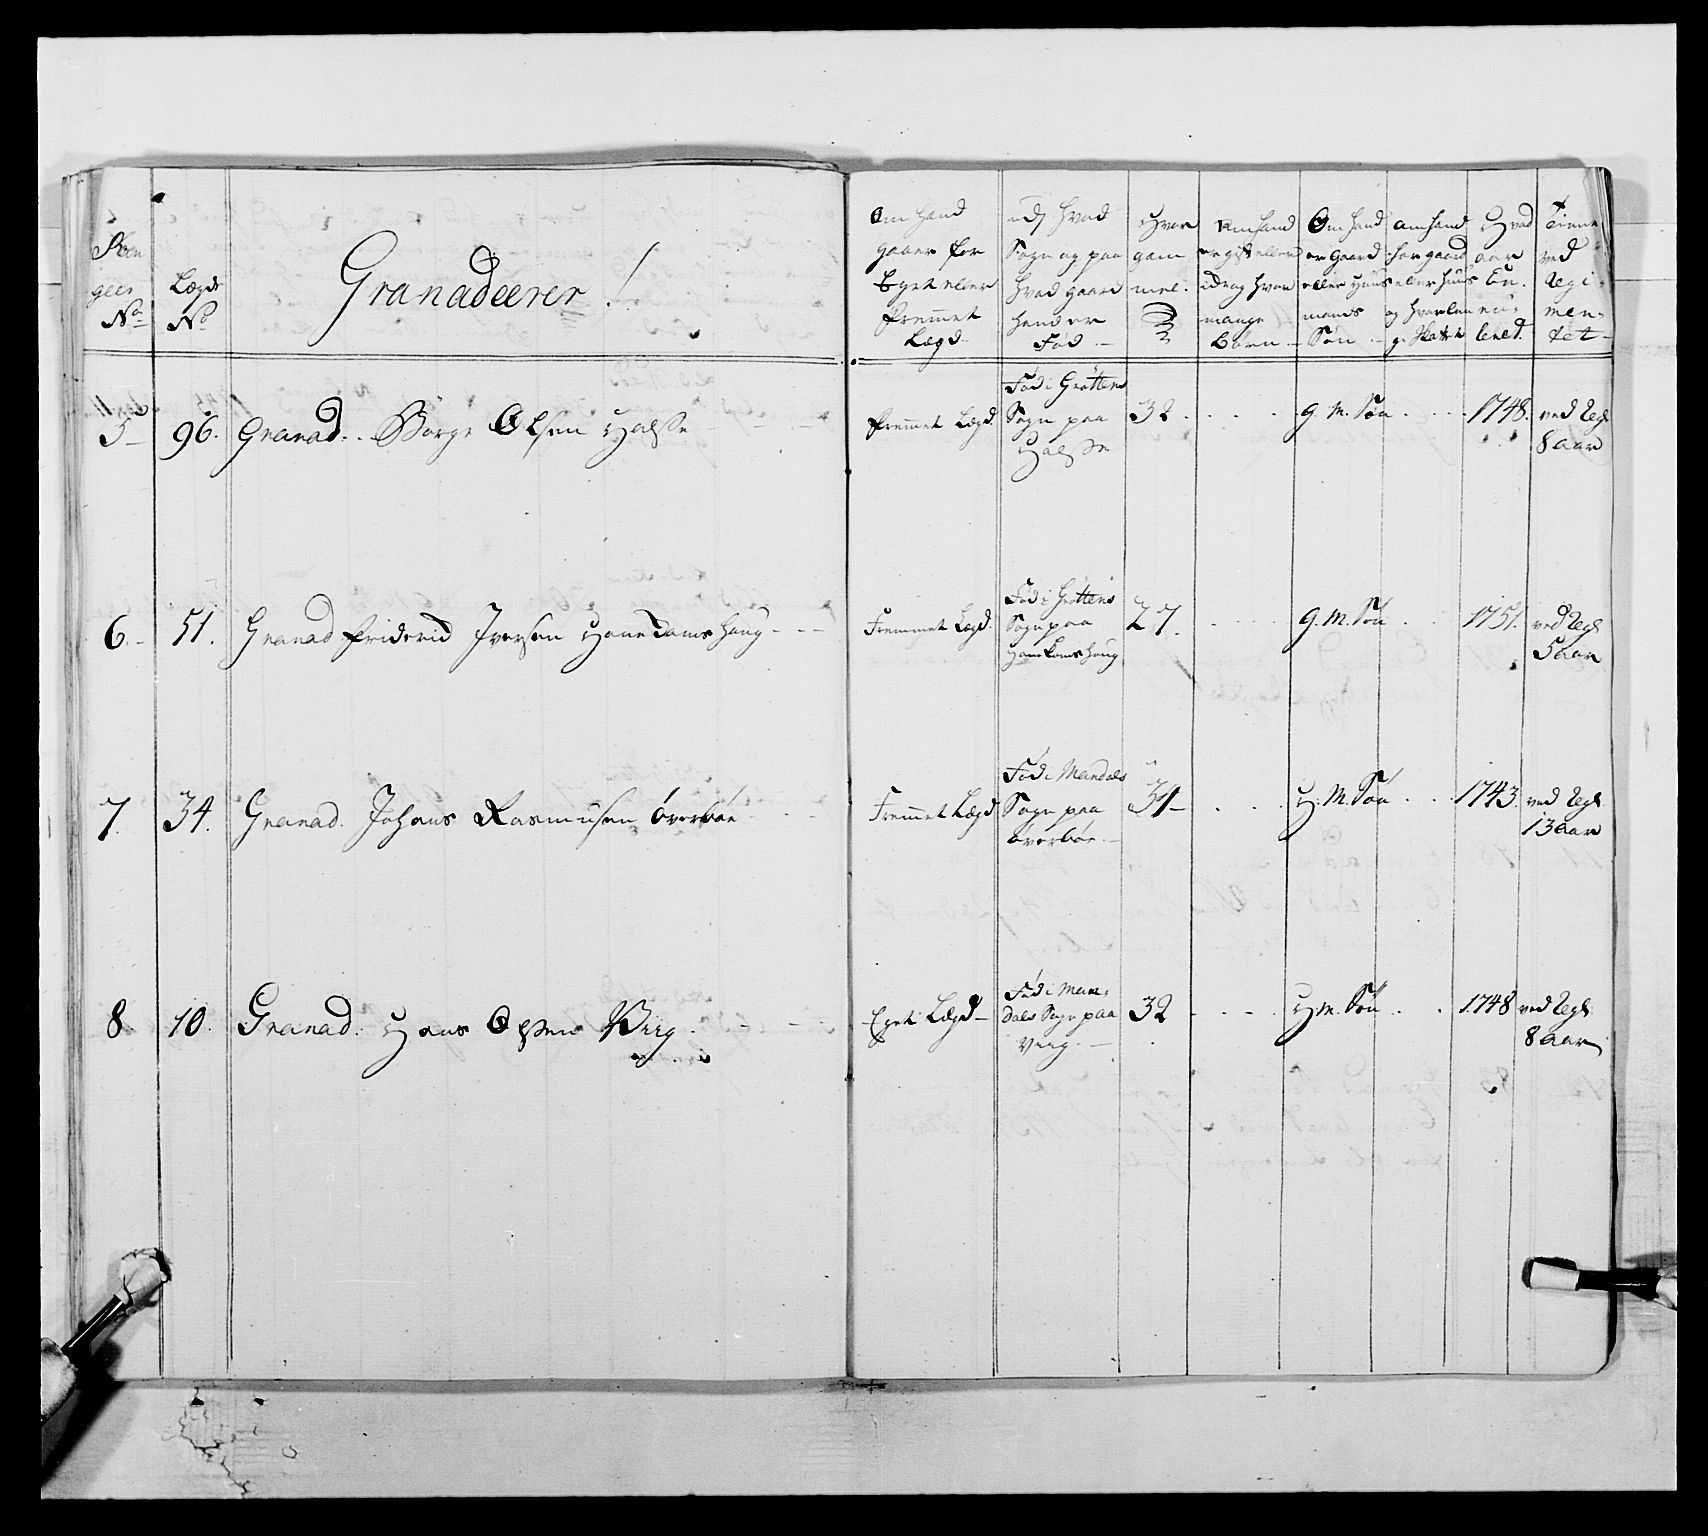 Ran
gers
No
Lægds
No
Granadeerer /
Om hand
gaaer for
Eget eller
fremmet
Lægd.
udj hvad
Sogn og paa
hvad gaard
hand er
Fød
Hvor
gam
mel.
om hand
er gift eller
Børn
mange
Om hand
er gaard
eller Huus
mands
Søn
om hand
har gaard
eller huus
og hvor
Hvad
aar
En-
rul-
leret.
Tient
ved
Regi-
men-
tet
5 96. Granad. Børge Olsen Halsse fremmet Lægd. Fød i Grøttens Sogn paa Halsse 32 . . . G. M. Søn . . . 1748. ved Regt. 8 aar
6 51. Granad friderid Iversen Hanedams Haug Fremmet Lægd. Fød i Grøttens Sogn paa Hanedams Haug 27. G. M. Søn . . 1751. ved Regt. 5 aar
7. 34. Granad. Johans Rasmusen Øverbøe Fremmet Lægd Fød i Mandals Sogn paa Øverbøe 31 . . . H. M. Søn . . . 1743. ved Regt. 13 aar
8 10. Granad. Hans Olssen Viig Eget Lægd Fød i Mandals Sogn paa Viig. 32 . . . H. M. Søn . . . 1748 ved Regt. 8 aar